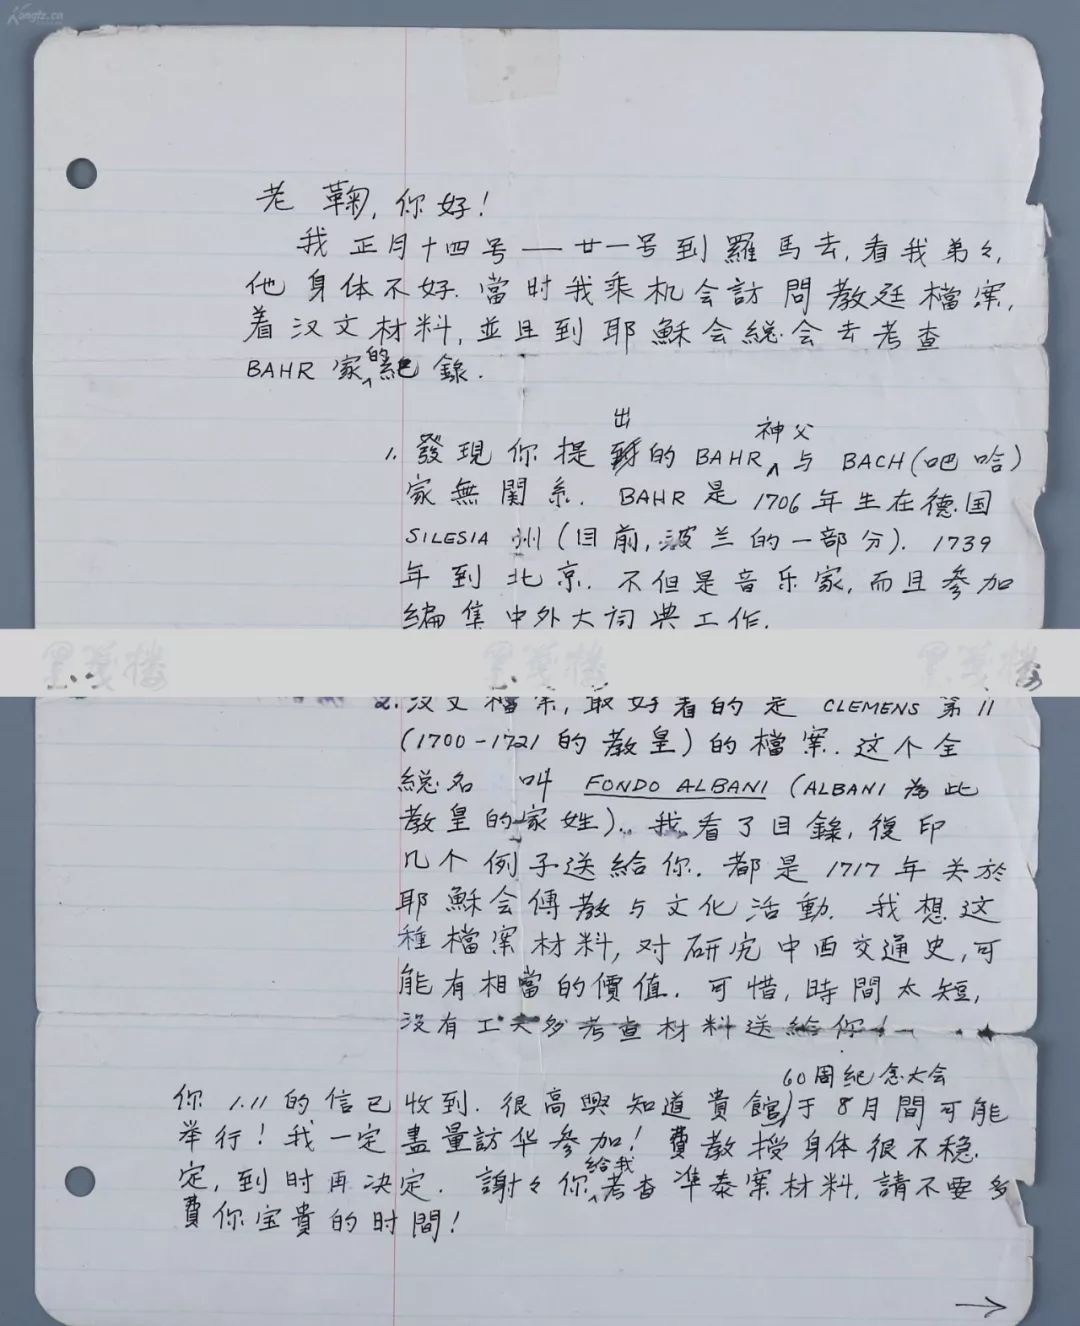 Kongfz.cn
老鞠,你好!
我正月十四号——廿一号到羅馬去,看我弟々,
他身体不好.當时我乘机会訪問教廷檔案,
着汉文材料,並且到耶穌会総会去考查
BAHR 家的紀錄.
1.發現你提出的 BAHR 神父与 BACH(吧哈)
家無関系. BAHR 是 1706 年生在德国
SILESIA 州(目前,波兰的一部分). 1739
年到北京.不但是音乐家,而且参加
编集中外大词典工作.
墨笺楼 墨笺楼 墨笺楼
2.汉文檔案,最好看的是 CLEMENS 第11
(1700-1721 的教皇)的檔案.这个全
総名 叫 FONDO ALBANI (ALBANI 為此
教皇的家姓).我看了目錄,復印
几个例子送給你.都是 1717 年关於
耶穌会傳教与文化活動.我想这
種檔案材料,对研究中西交通史,可
能有相當的價值.可惜,時間太短,
没有工夫多考查材料送給你!
你 1.11 的信已收到.很高興知道貴館60周紀念大会于8月間可能
举行!我一定盡量訪华参加!費教授身体很不稳
定,到时再决定.謝々你給我考查準泰案材料,請不要多
費你宝貴的时間!
→